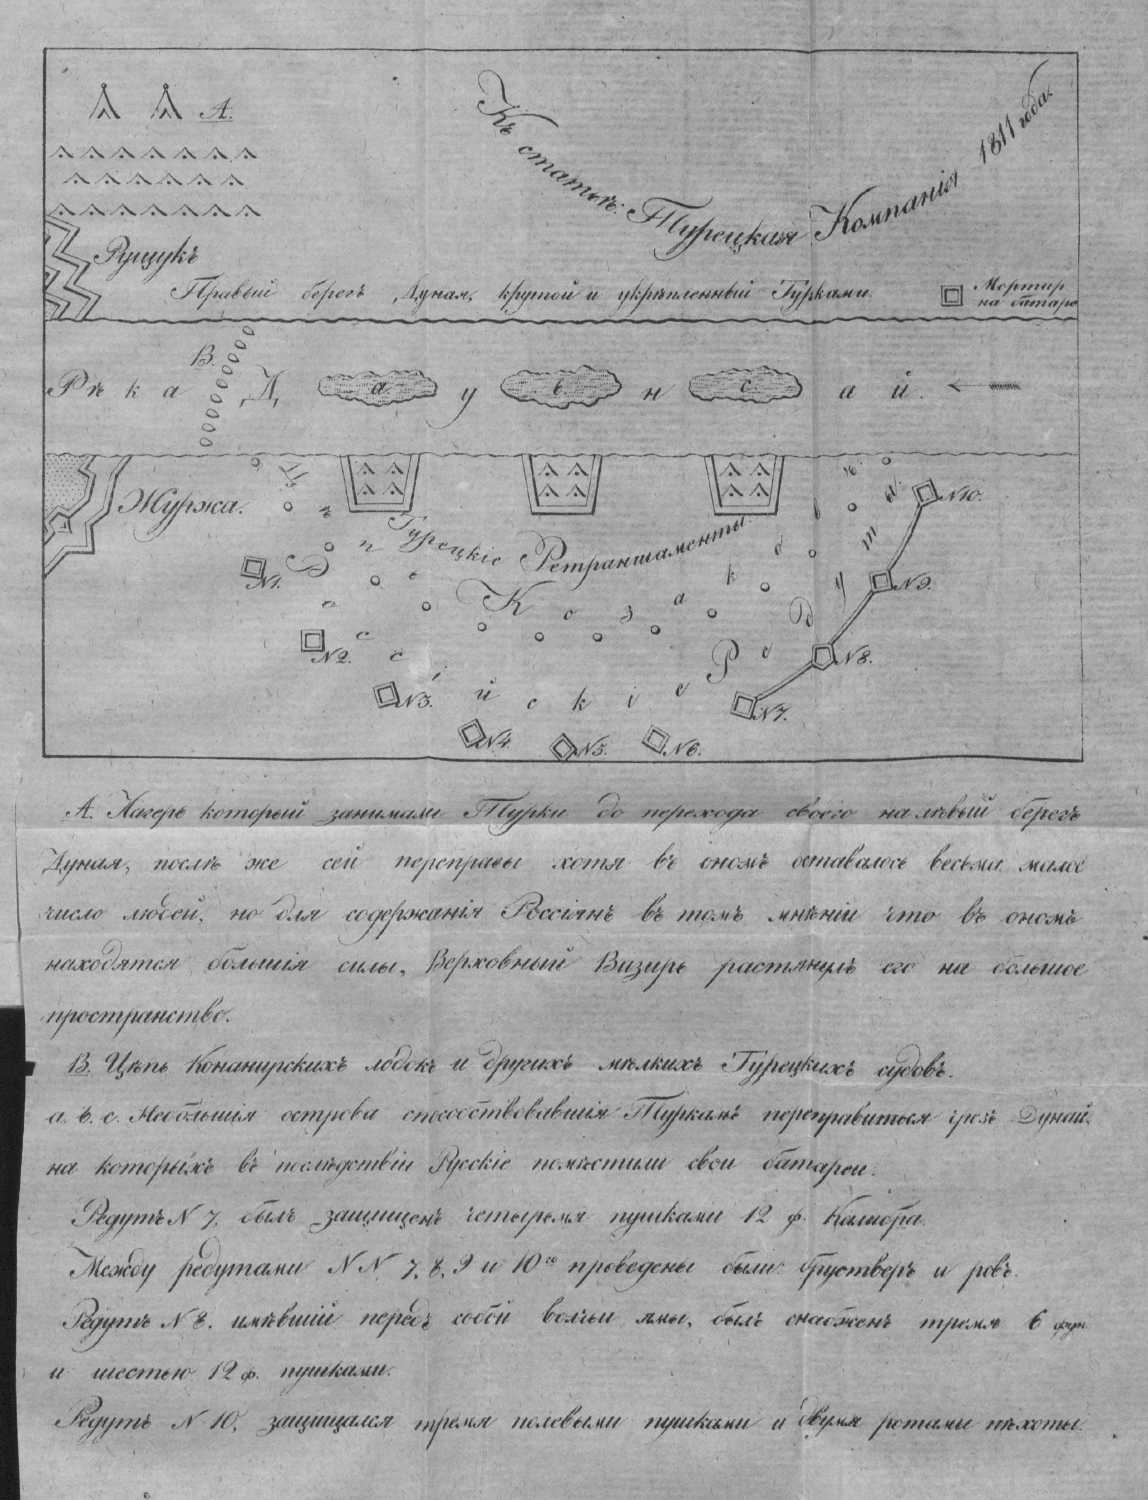 Къ статьѣ: Турецкая Компанія 1811 года.
А.
Рущукъ
Правый берегъ Дуная, крутой и укрѣпленный Турками.
Мортир
на батаре
В.
Рѣка Дунай.
а.
b.
c.
Журжа.
Турецкіе Ретраншаменты
Цѣпь Козаковъ
Россійскіе Редуты.
N1.
N2.
N3.
N4.
N5.
N6.
N7.
N8.
N9.
N10.
А. Лагерь который занимали Турки до перехода своего на лѣвый берегъ
Дуная, послѣ же сей переправы хотя въ ономъ оставалось весьма малое
число людей, но для содержанія Россіянъ въ томъ мнѣніи что въ ономъ
находятся большія силы, Верховный Визирь растянулъ его на большое
пространство.
В. Цѣпь Конанирскихъ лодокъ и другихъ мѣлкихъ Турецкихъ судовъ.
a. b. c. Небольшія острова способствовавшія Туркамъ переправиться чрезъ Дунай,
на которыхъ въ послѣдствіи Русскіе помѣстили свои батареи.
Редутъ N 7, былъ защищенъ четырьмя пушками 12 ф. Калибра.
Между редутами N N 7, 8, 9 и 10го проведены были брустверъ и ровъ.
Редутъ N 8. имѣвшій передъ собой волчьи ямы, былъ снабженъ тремя 6 фун
и шестью 12 ф. пушками.
Редутъ N 10, защищался тремя полевыми пушками и двумя ротами пѣхоты.